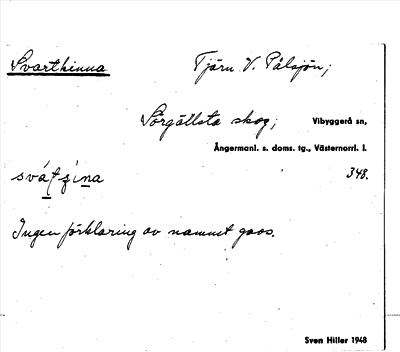 Svarttinna Tjärn V. Pålsjön;
Sörgällsta skog; Vibyggerå sn,
Ångermanl. s. doms. tg., Västernorrl. l.
348.
Ingen förklaring av namnet gavs.
Sven Hiller 1948